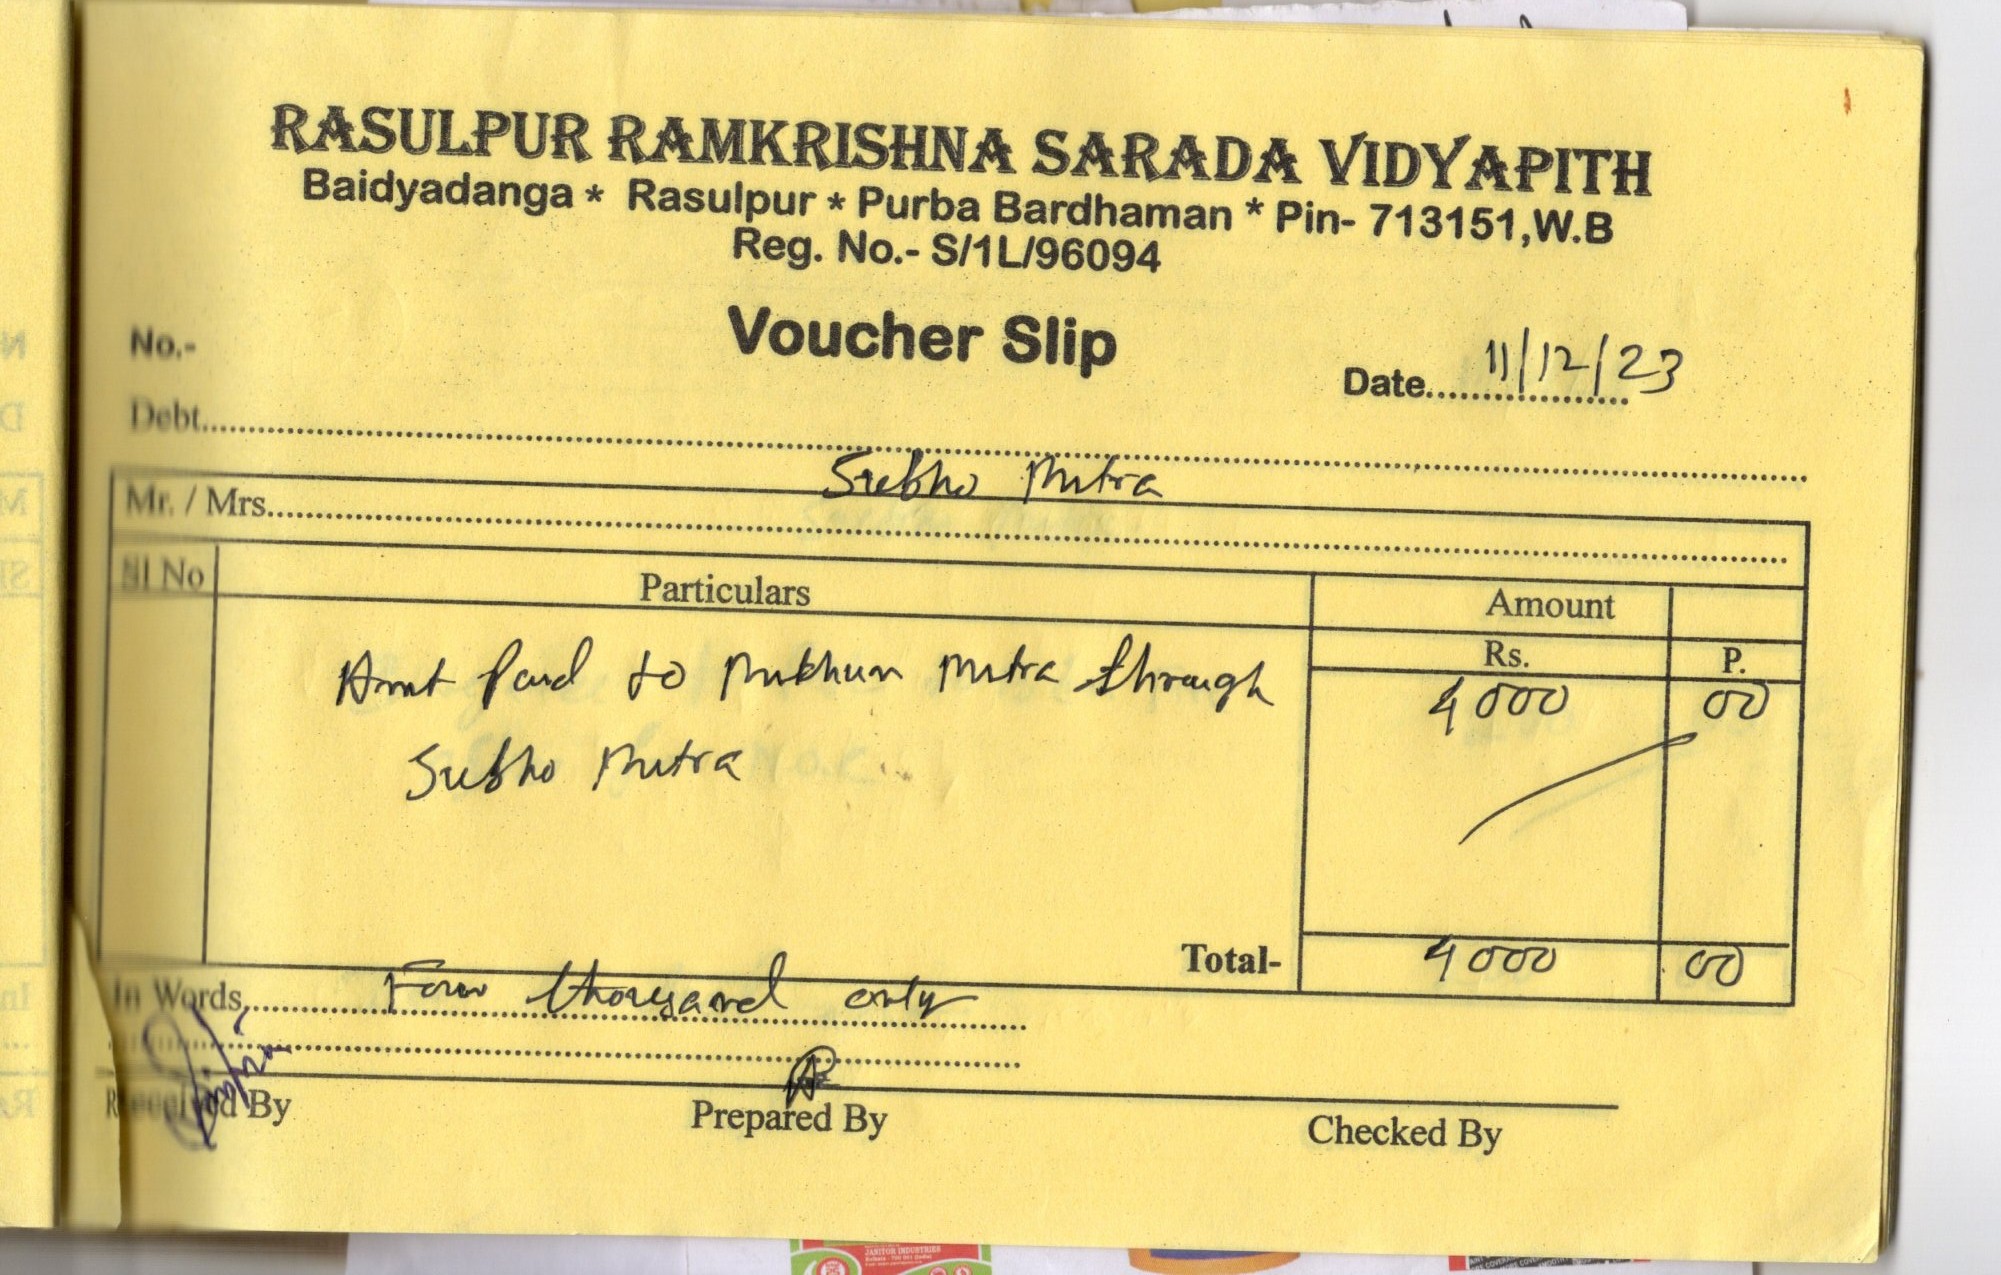 RASULPUR RAMKRISHNA SARADA VIDYAPITH
Baidyadanga * Rasulpur * Purba Bardhaman * Pin- 713151,W.B
Reg. No.- S/1L/96094
Voucher Slip
No.-
Date 11/12/23
Debt
Mr. / Mrs. Subho Mitra
Sl No Particulars Amount
Rs. P.
Amt Paid to Mitra through 4000 00
Subho Mitra
Total- 4000 00
In Words Four thousand only
Received By Prepared By Checked By
JANITOR INDUSTRIES